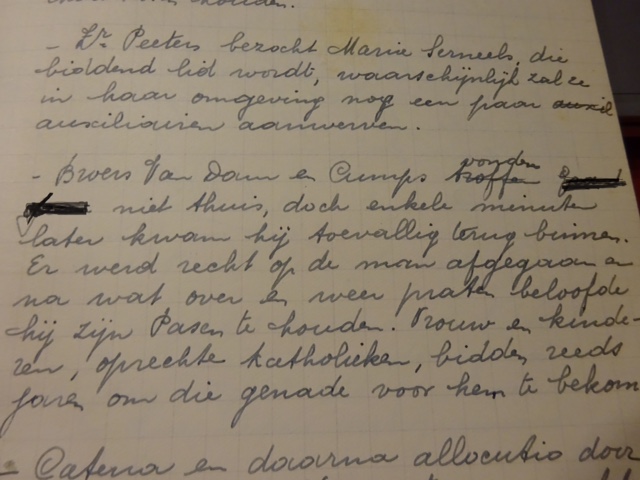 houden.
- Zr Peeters bezocht Marie Serneels, die
biddend lid wordt, waarschijnlijk zal ze
in haar omgeving nog een paar auxil
auxiliairen aanwerven.
- Broers Van Dam en Cumps troffen vonden
niet thuis, doch enkele minuten
later kwam hij toevallig terug binnen.
Er werd recht op de man afgegaan en
na wat over en weer praten beloofde
hij zijn Pasen te houden. Vrouw en kinde-
ren, oprechte katholieken, bidden reeds
jaren om die genade voor hem te bekom
= Catena en daarna allocutio door